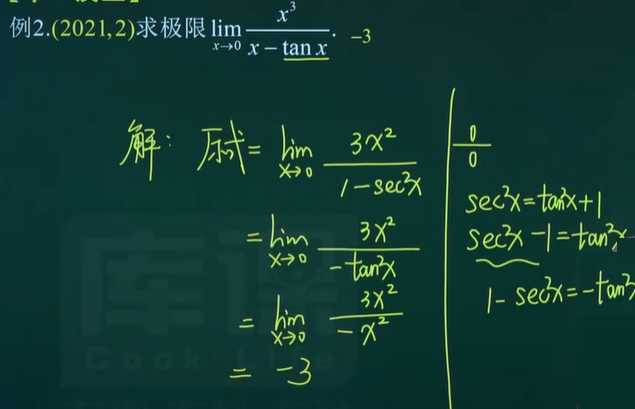 例2.(2021,2)求极限 lim x→0 x³/(x − tan x). −3
解: 原式 = lim x→0 3x²/(1 − sec²x)
= lim x→0 3x²/(−tan²x)
= lim x→0 3x²/(−x²)
= −3
0/0
sec²x = tan²x + 1
sec²x − 1 = tan²x
1 − sec²x = −tan²
库课
Cook Line